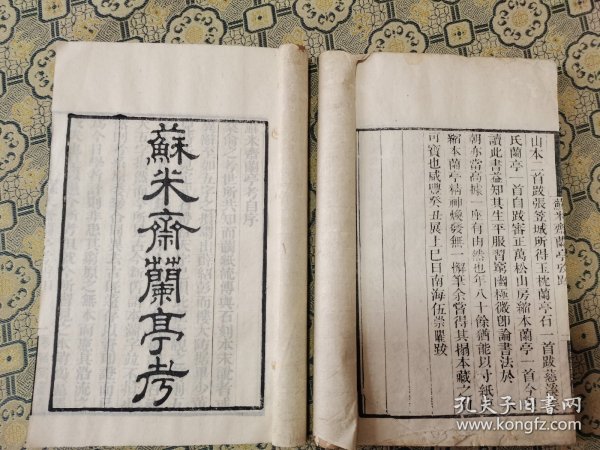 蘇米齋蘭亭考
山本一首跋張笠城所得玉枕蘭亭石一首跋慈溪
氏蘭亭一首自跋審正萬松山房縮本蘭亭一首今
讀此書益知其生平服習窮幽極微卽論書法於
朝亦當高據一座有由然也年八十餘猶能以寸紙
縮本蘭亭精神煥發無一懈筆余嘗得其搨本藏之
可寶也咸豐癸丑展上巳日南海伍崇曜跋
孔夫子旧书网
www.kongfz.com